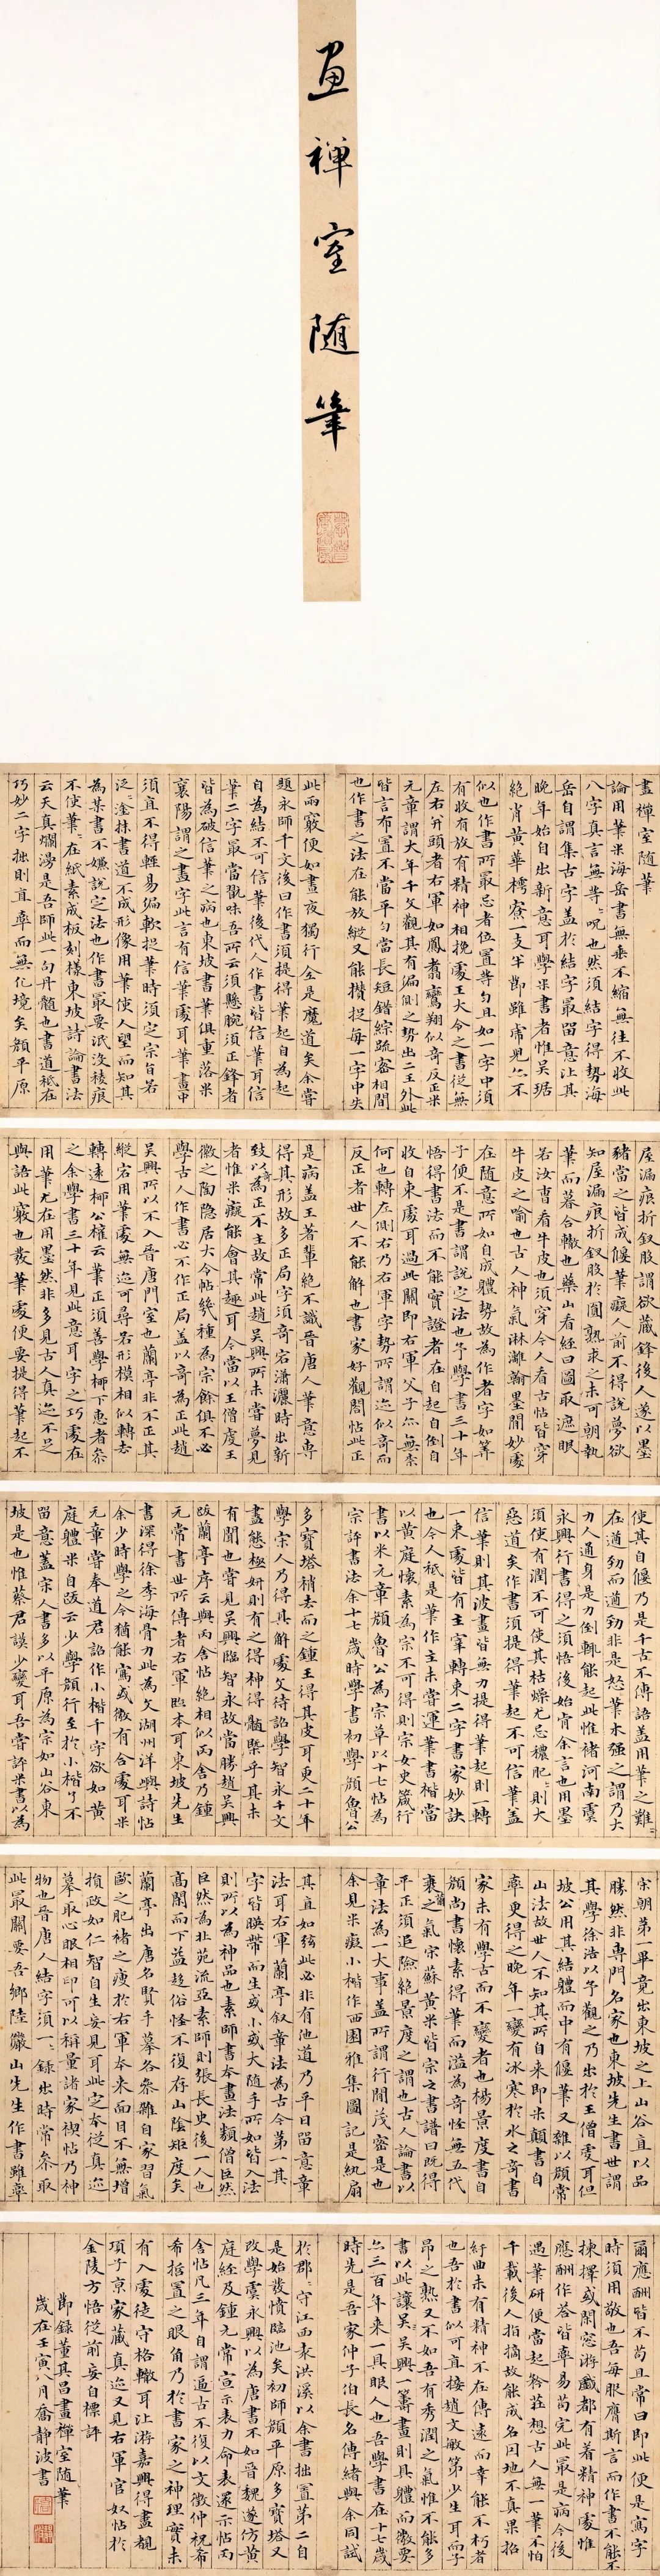 畫禪室随筆
畫禪室随筆
論用筆米海岳書無垂不縮無往不收此
八字真言無等〻呪也然須結字得勢海
岳自謂集古字盖於結字最留意让其
晚年始自出新意耳學米書者惟吴琚
絶肖黄華樗寮一支半節雖虎兒亦不
似也作書所最忌者位置等勻且如一字中須
有收有放有精神相挽處王大令之書従無
左右并頭者右軍如鳳翥鸞翔似奇反正米
元章謂大年千文觀其有偏側之勢出二王外此
皆言布置不當平勻當長短錯綜疏密相間
也作書之法在能放縱又能攢捉每一字中失
此兩竅便如晝夜獨行全是魔道矣余嘗
題永師千文後曰作書須提得筆起自為起
自為結不可信筆後代人作書皆信筆耳信
筆二字最當翫味吾所云須懸腕須正鋒者
皆為破信筆之病也東坡書筆俱重落米
襄陽謂之畫字此言有信筆處耳筆畫中
須直不得輕易偏軟捉筆時須定宗旨若
泛〻塗抹書道不成形像用筆使人望而知其
為某書不嫌說定法也作書最要泯沒稜痕
不使筆〻在紙素成板刻樣東坡詩論書法
云天真爛漫是吾師此一句丹髓也書道袛在
巧妙二字拙則直率而無化境矣顏平原
屋漏痕折釵股謂欲藏鋒後人遂以墨
豬當之皆成偃筆癡人前不得說夢欲
知屋漏痕折釵股於圆熟求之未可朝執
筆而暮合轍也藥山看經曰圖取遮眼
若汝曹看牛皮也須穿今人看古帖皆穿
牛皮之喻也古人神氣淋漓翰墨間妙處
在随意所如自成體勢故為作者字如筭
子便不是書謂說定法也予學書三十年
悟得書法而不能實證者在自起自倒自
收自束處耳過此關即右軍父子亦無柰
何也轉左側右乃右軍字勢所謂迹似奇而
反正者世人不能解也書家好觀閣帖此正
是病盖王著輩絶不識晉唐人筆意專
得其形故多正局字須奇宕瀟灑時出新
致以奇為正不主故常此趙吴興所未嘗夢見
者惟米癡能會其趣耳今當以王僧虔王
徽之陶隐居大令帖幾種為宗餘俱不必
學古人作書必不作正局盖以奇為正此趙
吴興所以不入晉唐門室也蘭亭非不正其
縱宕用筆處無迹可尋若形模相似轉去
轉遠柳公權云筆正須善學柳下惠者叅
之余學書三十年見此意耳字之巧處在
用筆尤在用墨然非多見古人真迹不足
與語此竅也發筆處便要提得筆起不
使其自偃乃是千古不傳語盖用筆之難〻
在遒勁而遒勁非是怒筆木强之謂乃大
力人通身是力倒輒能起此惟褚河南虞
永興行書得之須悟後始肯余言也用墨
須使有潤不可使其枯燥尤忌穠肥〻則大
惡道矣作書須提得筆起不可信筆盖
信筆則其波畫皆無力提得筆起則一轉
一束處皆有主宰轉束二字書家妙訣
也今人衹是筆作主未嘗運筆書楷當
以黄庭懷素為宗不可得則宗女史箴行
書以米元章顏魯公為宗草以十七帖為
宗評書法余十七歲時學書初學顏魯公
多寶塔稍去而之鍾王得其皮耳更二十年
學宋人乃得其解處文待詔學智永千文
盡態極妍則有之得神得髓槩乎其未
有聞也嘗見吴興臨智永故當勝趙吴興
跋蘭亭序云與丙舍帖絶相似丙舍乃鍾
元常書世所傳者右軍臨本耳東坡先生
書深得徐季海骨力此為文湖州洋嶼詩帖
余少時學之今猶能寫或微有合處耳米
元章嘗奉道君詔作小楷千字欲如黄
庭體米自跋云少學顏行至於小楷了不
留意蓋宋人書多以平原為宗如山谷東
坡是也惟蔡君謨少變耳吾嘗評米書以為
宋朝第一畢竟出東坡之上山谷直以品
勝然非專門名家也東坡先生書世謂
其學徐浩以予觀之乃出於王僧虔耳但
坡公用其結體而中有偃筆又雜以顏常
山法故世人不知其所自来即米顛書自
率更得之晚年一變有冰寒於水之奇書
家未有學古而不變者也楊景度書自
顏尚書懷素得筆而溢為奇怪無五代
衰薾之氣宗蘇黄米皆宗之書譜曰既得
平正須追險絶景度之謂也古人論書以
章法為一大事盖所謂行間茂密是也
余見米癡小楷作西園雅集圖記是紈扇
其直如弦此必非有他道乃平日留意章
法耳右軍蘭亭叙章法為古今第一其
字皆暎帶而生或小或大随手所如皆入法
則所以為神品也素師書本畫法類僧巨然
巨然為北苑流亞素師則張長史後一人也
高閑而下益趁俗怪不復存山陰矩度矣
蘭亭出唐名賢手摹各叅雜自家習氣
歐之肥褚之瘦於右軍夲来面目不無增
損政如仁智自生妄見耳此定夲従真迹
摹取心眼相印可以稱量諸家禊帖乃神
物也晉唐人結字須一〻錄出時常叅取
此最關要吾鄉陸儼山先生作書雖率
爾應酬皆不苟且常曰即此便是寫字
時須用敬也吾每服膺斯言而作書不能不
揀擇或閑窓游戲都有着精神處惟
應酬作荅皆率易苟完此最是病今後
遇筆研便當起矜莊想古人無一筆不怕
千載後人指摘故能成名因地不真果招
紆曲未有精神不在傳遠而幸能不朽者
也吾於書似可直接趙文敏第少生耳而子
昂之熟又不如吾有秀潤之氣惟不能多
書以此讓吴〻興一籌畫則具體而微要
亦三百年来一具眼人也吾學書在十七歲
時先是吾家仲子伯長名傳緒與余同試
於郡〻守江西袁洪溪以余書拙置第二自
是始發憤臨池矣初師顏平原多寶塔又
改學虞永興以為唐書不如晉魏遂仿黄
庭經及鍾元常宣示表力命表還示帖丙
舍帖凡三年自謂逼古不復以文徵仲祝希
希哲置之眼角乃於書家之神理實未
有入處徒守格轍耳让游嘉興得盡覩
項子京家藏真迹又見右軍官奴帖於
金陵方悟従前妄自標評
節錄董其昌畫禪室随筆
歲在壬寅八月喬静波書